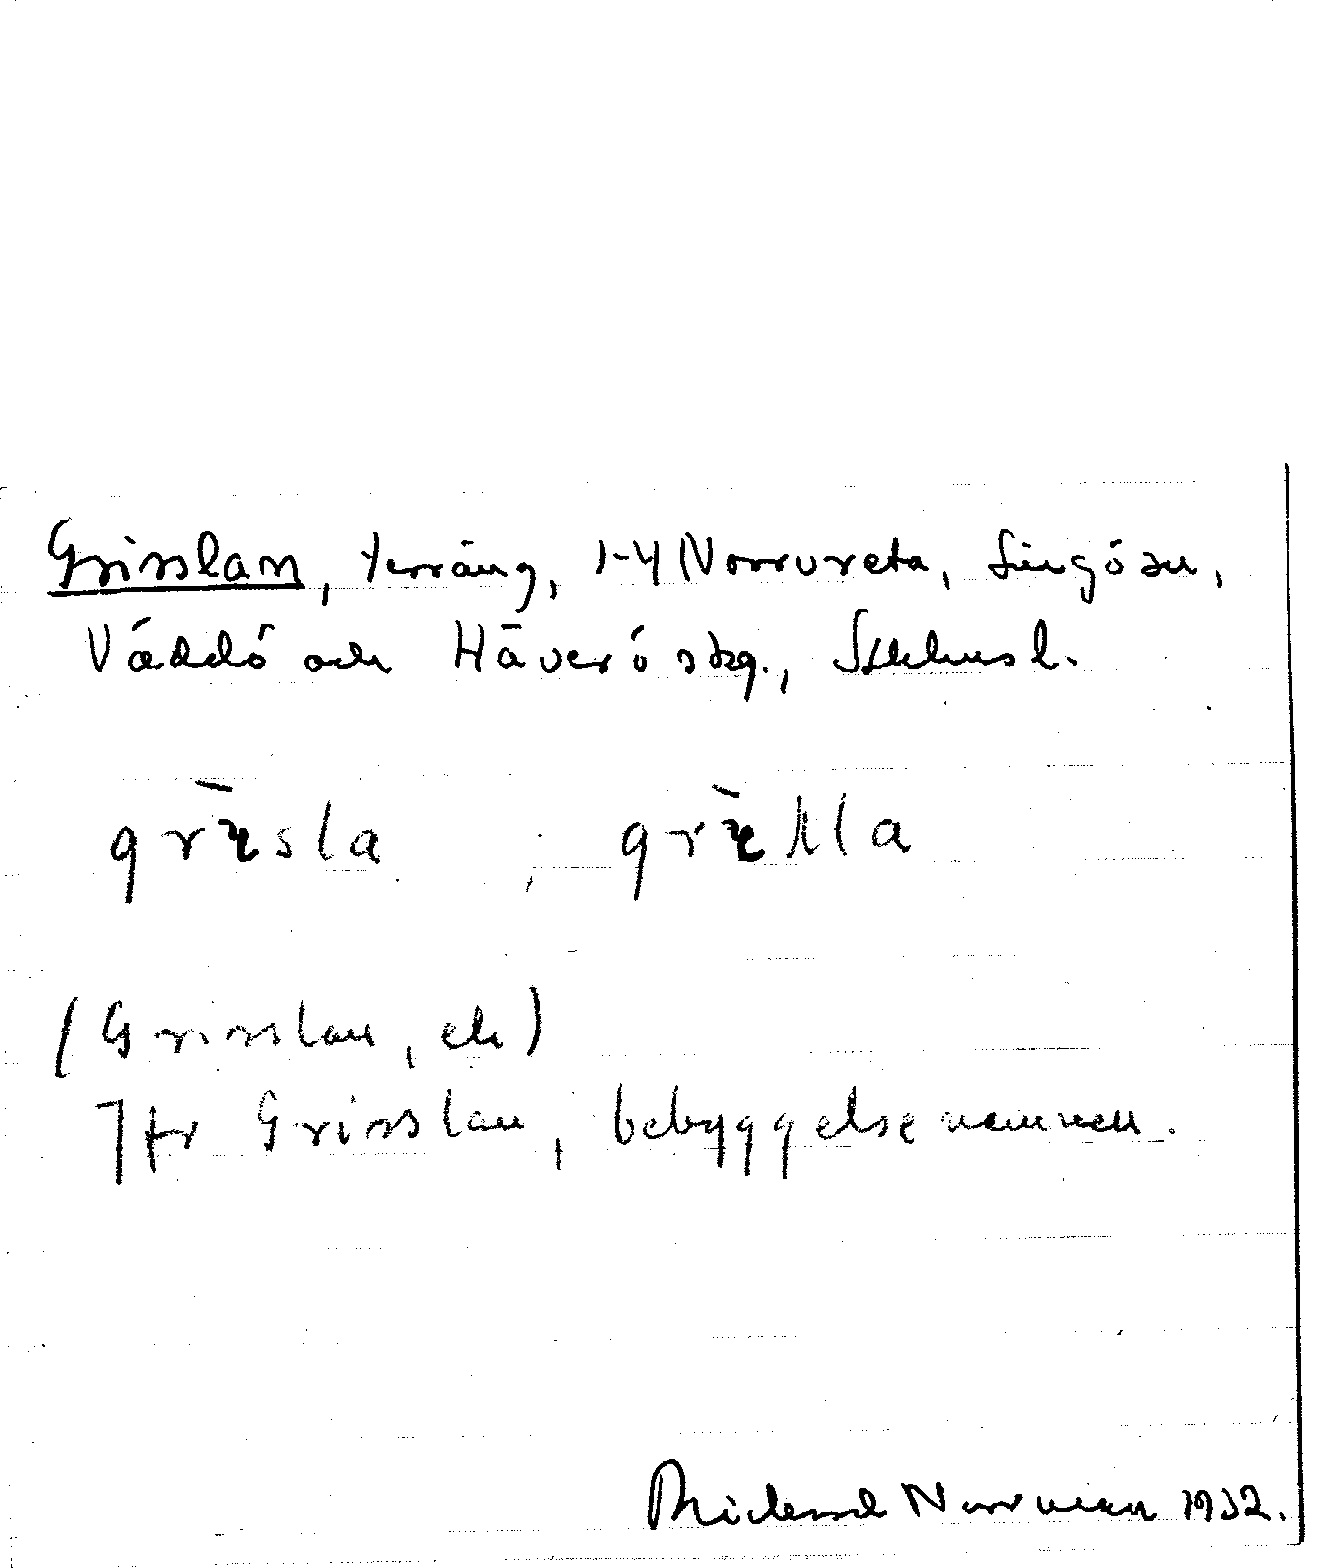 Grisslan, terräng, 1-4 Norrvreta, Singö sn,
Väddö och Häverö skg., Sthlms l.
(Grisslan, ek)
Jfr Grisslan, bebyggelsenamnen.
Rickard Norrman 1932.